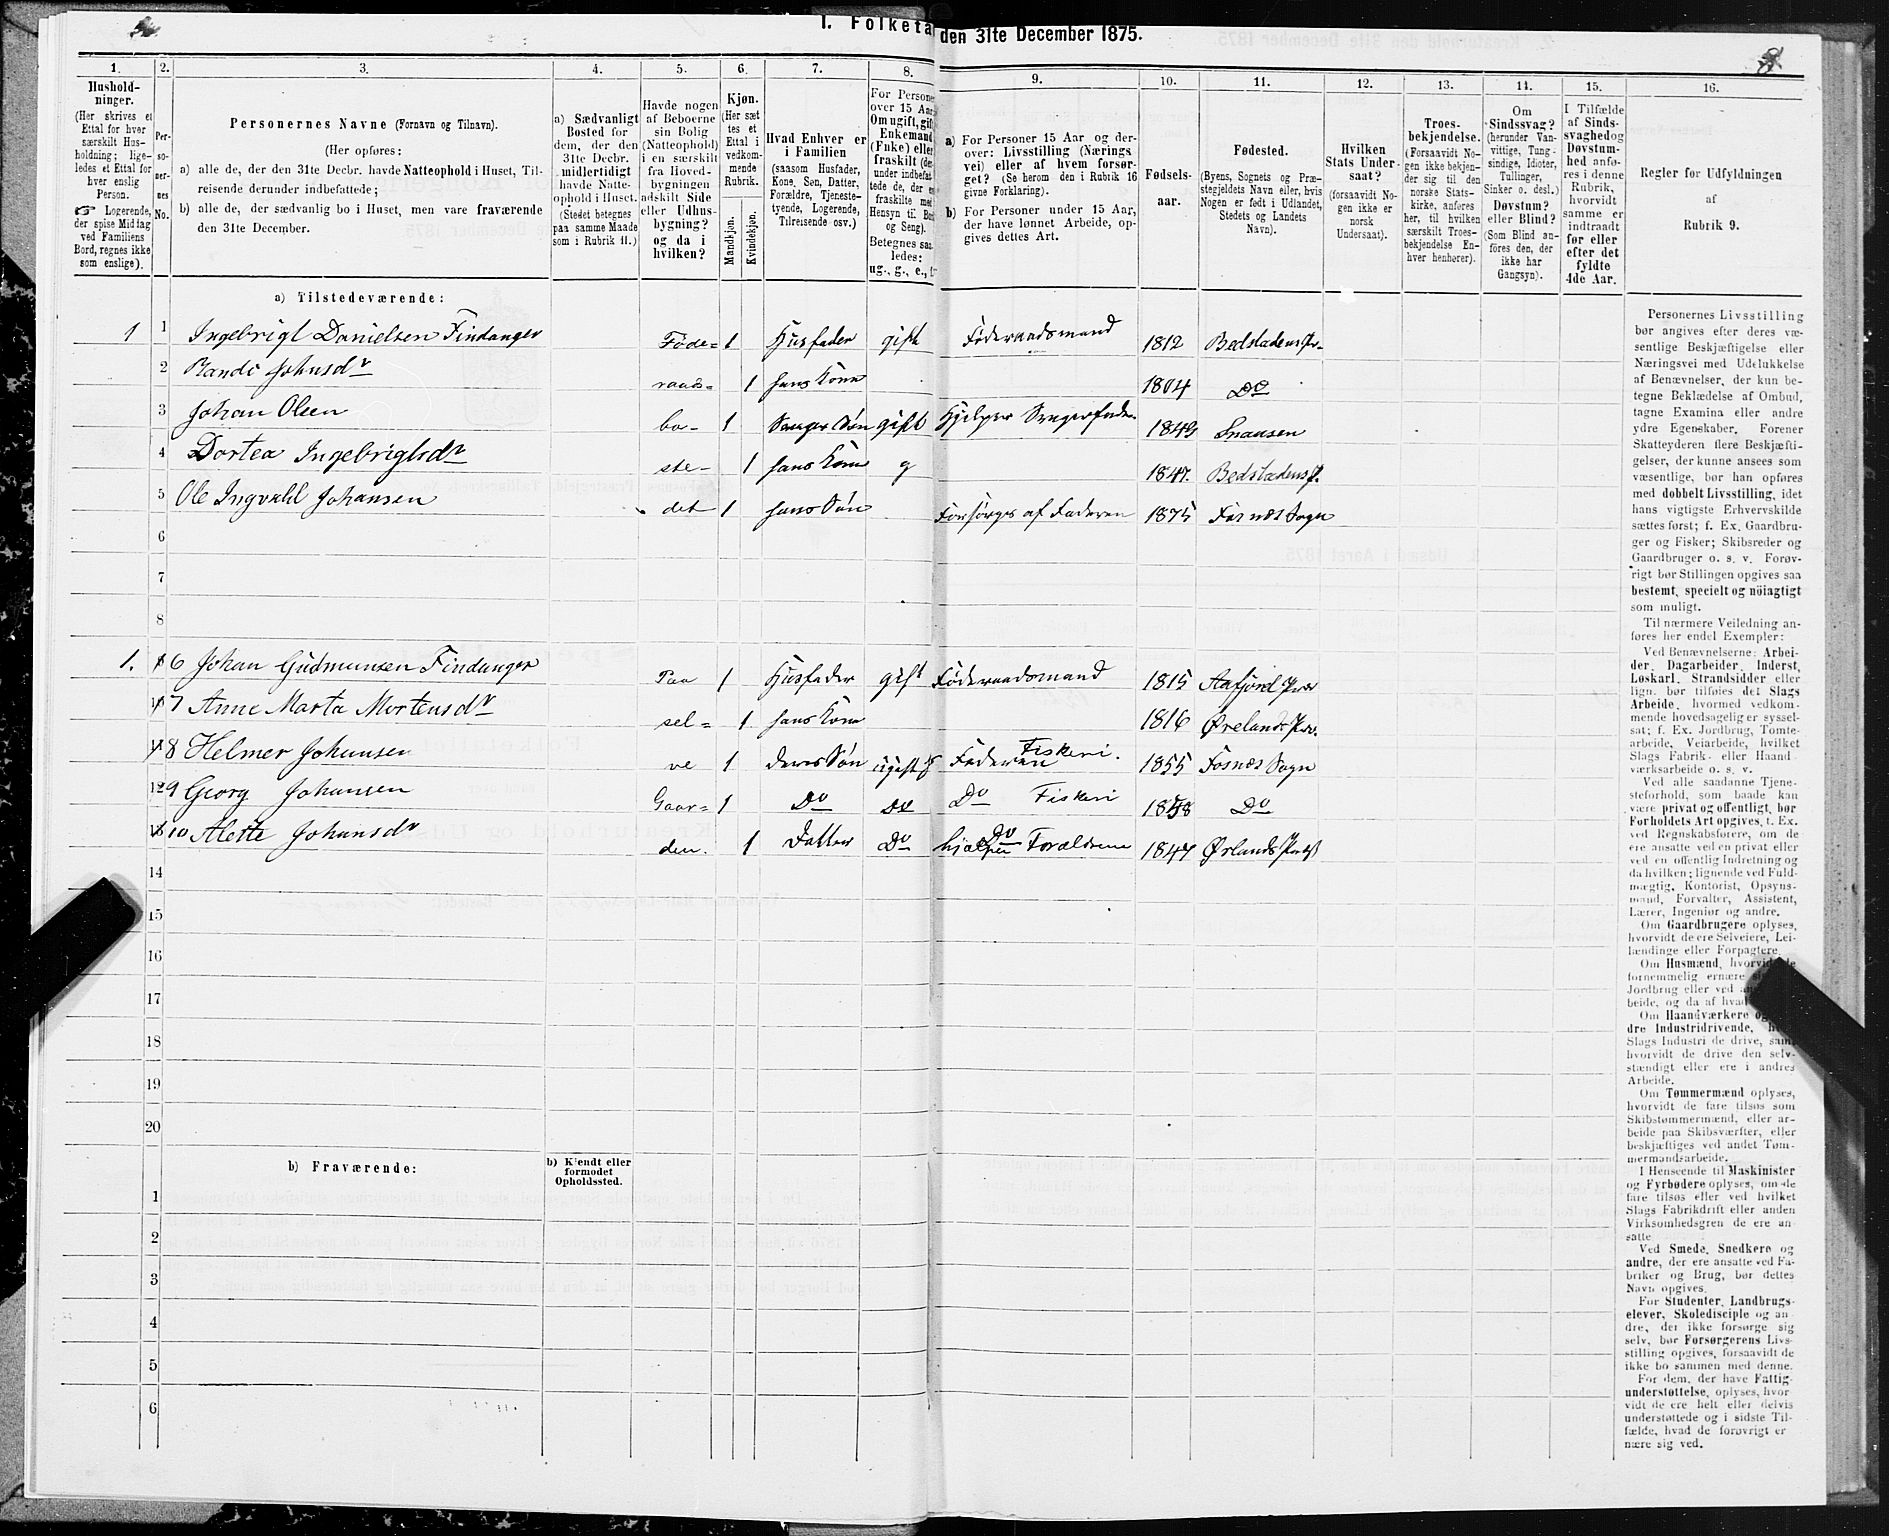 I. Folketæ den 31te December 1875.
1. 2. 3. 4. 5. 6. 7. 8. 9. 10. 11. 12. 13. 14. 15. 16.
Hushold-
ninger.
(Her skrives et
Ettal for hver
særskilt Hus-
holdning; lige-
ledes et Ettal for
hver enslig
Person.
☞ Logerende,
der spise Middag
ved Familiens
Bord, regnes ikke
som enslige).
Per-
so-
ner-
nes
No.
Personernes Navne (Fornavn og Tilnavn).
(Her opføres:
a) alle de, der den 31te Decbr. havde Natteophold i Huset, Til-
reisende derunder indbefattede;
b) alle de, der sædvanlig bo i Huset, men vare fraværende
den 31te December.
a) Sædvanligt
Bosted for
dem, der den
31te Decbr.
midlertidigt
havde Natte-
ophold i Huset.
(Stedet betegnes
paa samme Maade
som i Rubrik 11.)
Havde nogen
af Beboerne
sin Bolig
(Natteophold)
i en særskilt
fra Hoved-
bygningen
adskilt Side
eller Udhus-
bygning?
og da i
hvilken?
Kjøn.
(Her sæt
tes et
Ettal i
vedkom-
mende
Rubrik.
Mandkjøn.
Kvindekjøn.
Hvad Enhver er
i Familien
(saasom Husfader,
Kone, Søn, Datter,
Forældre, Tjeneste-
tyende, Logerende,
Tilreisende osv.)
For Persone
over 15 Aar
Om ugift, gif
Enkemand
(Enke) eller
fraskilt (der
under indbefat
tede de, der e
fraskilte med
Hensyn til Bor
og Seng).
Betegnes saa
ledes:
ug., g., e., f
a) For Personer 15 Aar og der-
over: Livsstilling (Nærings
vei) eller af hvem forsør-
get? (Se herom den i Rubrik 16
givne Forklaring).
b) For Personer under 15 Aar,
der have lønnet Arbeide, op-
gives dettes Art.
Fødsels-
aar.
Fødested.
(Byens, Sognets og Præ-
stegjeldets Navn eller, hvis
Nogen er født i Udlandet,
Stedets og Landets
Navn).
Hvilken
Stats Under-
saat?
(forsaavidt No-
gen ikke er
norsk
Undersaat).
Troes-
bekjendelse.
(Forsaavidt No-
gen ikke bekjen-
der sig til den
norske Stats-
kirke, anføres
her, til hvilken
særskilt Troes-
bekjendelse En-
hver henhører).
Om
Sindssvag?
(herunder Van-
vittige, Tung-
sindige, Idioter,
Tullinger,
Sinker o. desl.)
Døvstum?
eller Blind?
(Som Blind an-
føres den, der
ikke har
Gangsyn).
I Tilfælde
af Sinds-
svaghed og
Døvstum-
hed anfø-
res i denne
Rubrik,
hvorvidt
samme er
indtraadt
før eller
efter det
fyldte
4de Aar.
Regler for Udfyldningen
af
Rubrik 9.
a) Tilstedeværende:
1 1 Ingebrigt Danielsen Findanger Føde= 1 Husfader gift Føderaadsmand 1812 Bedstadens Pr.
2 Randi Johnsdr raads= 1 hans Kone 1804 Do
3 Johan Olsen bo- 1 Svigersøn gift Hjelper Svigerfader 1849 Snaasen
4 Dortea Ingebrigtsdr ste- 1 hans Kone g 1847. Bedstadens P.
5 Ole Ingvald Johansen det 1 hans Søn Forsørges af Faderen 1875 Fosnæs Sogn
6
7
8
1. 6 Johan Gudmunsen Findanger Paa 1 Husfader gift Føderaadsmand 1815 Aafjord Præs
7 Anne Marta Mortensdr sel= 1 hans Kone 1816 Ørelands Præs.
8 Helmer Johansen ve 1 deres Søn ugift Faderen Fiskeri. 1855 Fosnæs Sogn
9 Georg Johansen Gaar= 1 Do Do Do Fiskeri 1858 Do
10 Alette Johansdr den. 1 Datter Do Do hjælper Forældrene 1847 Ørlands Præst
14
15
16
17
18
19
20
b) Fraværende:
b) Kjendt eller
formodet
Opholdssted.
1
2
3
4
5
6
Personernes Livsstilling
bør angives efter deres væ-
sentlige Beskjæftigelse eller
Næringsvei med Udelukkelse
af Benævnelser, der kun be-
tegne Beklædelse af Ombud,
tagne Examina eller andre
ydre Egenskaber. Forener
Skatteyderen flere Beskjæfti-
gelser, der kunne ansees som
væsentlige, bør han opføres
med dobbelt Livsstilling, idet
hans vigtigste Erhvervskilde
sættes først; f. Ex. Gaardbru-
ger og Fisker; Skibsreder og
Gaardbruger o. s. v. Forøv-
rigt bør Stillingen opgives saa
bestemt, specielt og nöiagtigt
som muligt.
Til nærmere Veiledning an-
føres her endel Exempler:
Ved Benævnelserne: Arbei-
der, Dagarbeider, Inderst,
Løskarl, Strandsidder eller
lign. bør tilføies det Slags
Arbeide, hvormed vedkom-
mende hovedsagelig er syssel-
sat; f. Ex. Jordbrug, Tomte-
arbeide, Veiarbeide, hvilket
Slags Fabrik- eller Haand-
værksarbeide o. s. v.
Ved alle saadanne Tjene-
steforhold, som baade kan
være privat og offentligt, bør
Forholdets Art opgives, t. Ex.
ved Regnskabsførere, om de
ere ansatte ved en privat eller
ved en offentlig Indretning og
da hvilken; lignende ved Fuld-
mægtig, Kontorist, Opsyns-
mand, Forvalter, Assistent,
Lærer, Ingeniør og andre.
Om Gaardbrugere oplyses,
hvorvidt de ere Selveiere, Lei-
lændinge eller Forpagtere.
Om Husmænd, hvorvidt de
fornemmelig ernære si
Jordbrug eller ved an
beide, og da af hvad
Om Haandværkere og
dre Industridrivende, h
Slags Industri de drive, samt
hvorvidt de drive den selv-
stændigt eller ere i andres
Arbeide.
Om Tømmermænd oplyses,
hvorvidt de fare tilsøs som
Skibstømmermænd, eller ar-
beide paa Skibsværfter, eller
beskjæftiges ved andet Tøm-
mermandsarbeide.
I Henseende til Maskinister
og Fyrbødere oplyses, om de
fare tilsøs eller ved hvilket
Slags Fabrikdrift eller anden
Virksomhedsgren de ere an-
satte
Ved Smede, Snedkere og
andre, der ere ansatte ved Fa-
briker og Brug, bør dettes
Navn opgives.
For Studenter, Landbrugs-
elever, Skoledisciple og an-
dre, der ikke forsørge sig
selv, bør Forsørgerens Livs-
stilling opgives, forsaavidt de
ikke bo sammen med denne.
For dem, der have Fattig-
understøttelse, oplyses, hvor
vidt de ere helt eller delvis
understøttede og i sidste Til-
fælde, hvad de forøvrigt er
nære sig ved.